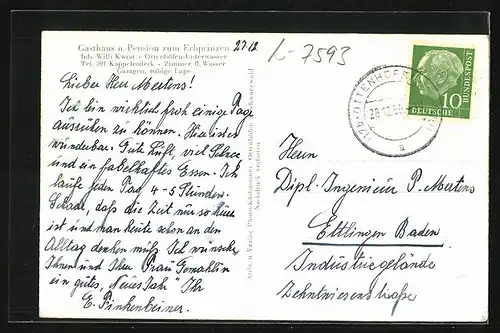 Gasthaus u. Pension zum Erbprinzen
Inh. Willi Kwist - Ottenhöfen-Unterwasser
Tel. 391 Kappelrodeck - Zimmer fl. Wasser
Garagen, ruhige Lage
27.12
L-7593
Lieber Herr Mertens!
Ich bin wirklich froh einige Tage
ausruhen zu können. Hier ist es
wunderbar. Gute Luft, viel Schnee
und ein fabelhaftes Essen. Ich
laufe jeden Tag 4-5 Stunden.
Schade, daß die Zeit nur so kurz
ist und man heute schon an den
Alltag denken muß. Ich wünsche
Ihnen und Ihrer Frau Gemahlin
ein gutes "Neues Jahr" Ihr
E. Finkenbeiner.
Nachdruck verboten
DEUTSCHE
BUNDESPOST
10
28.12.56
a
Herrn
Dipl. Ingenieur P. Mertens
Ettlingen Baden
Industriegelände
Zehntwiesenstraße